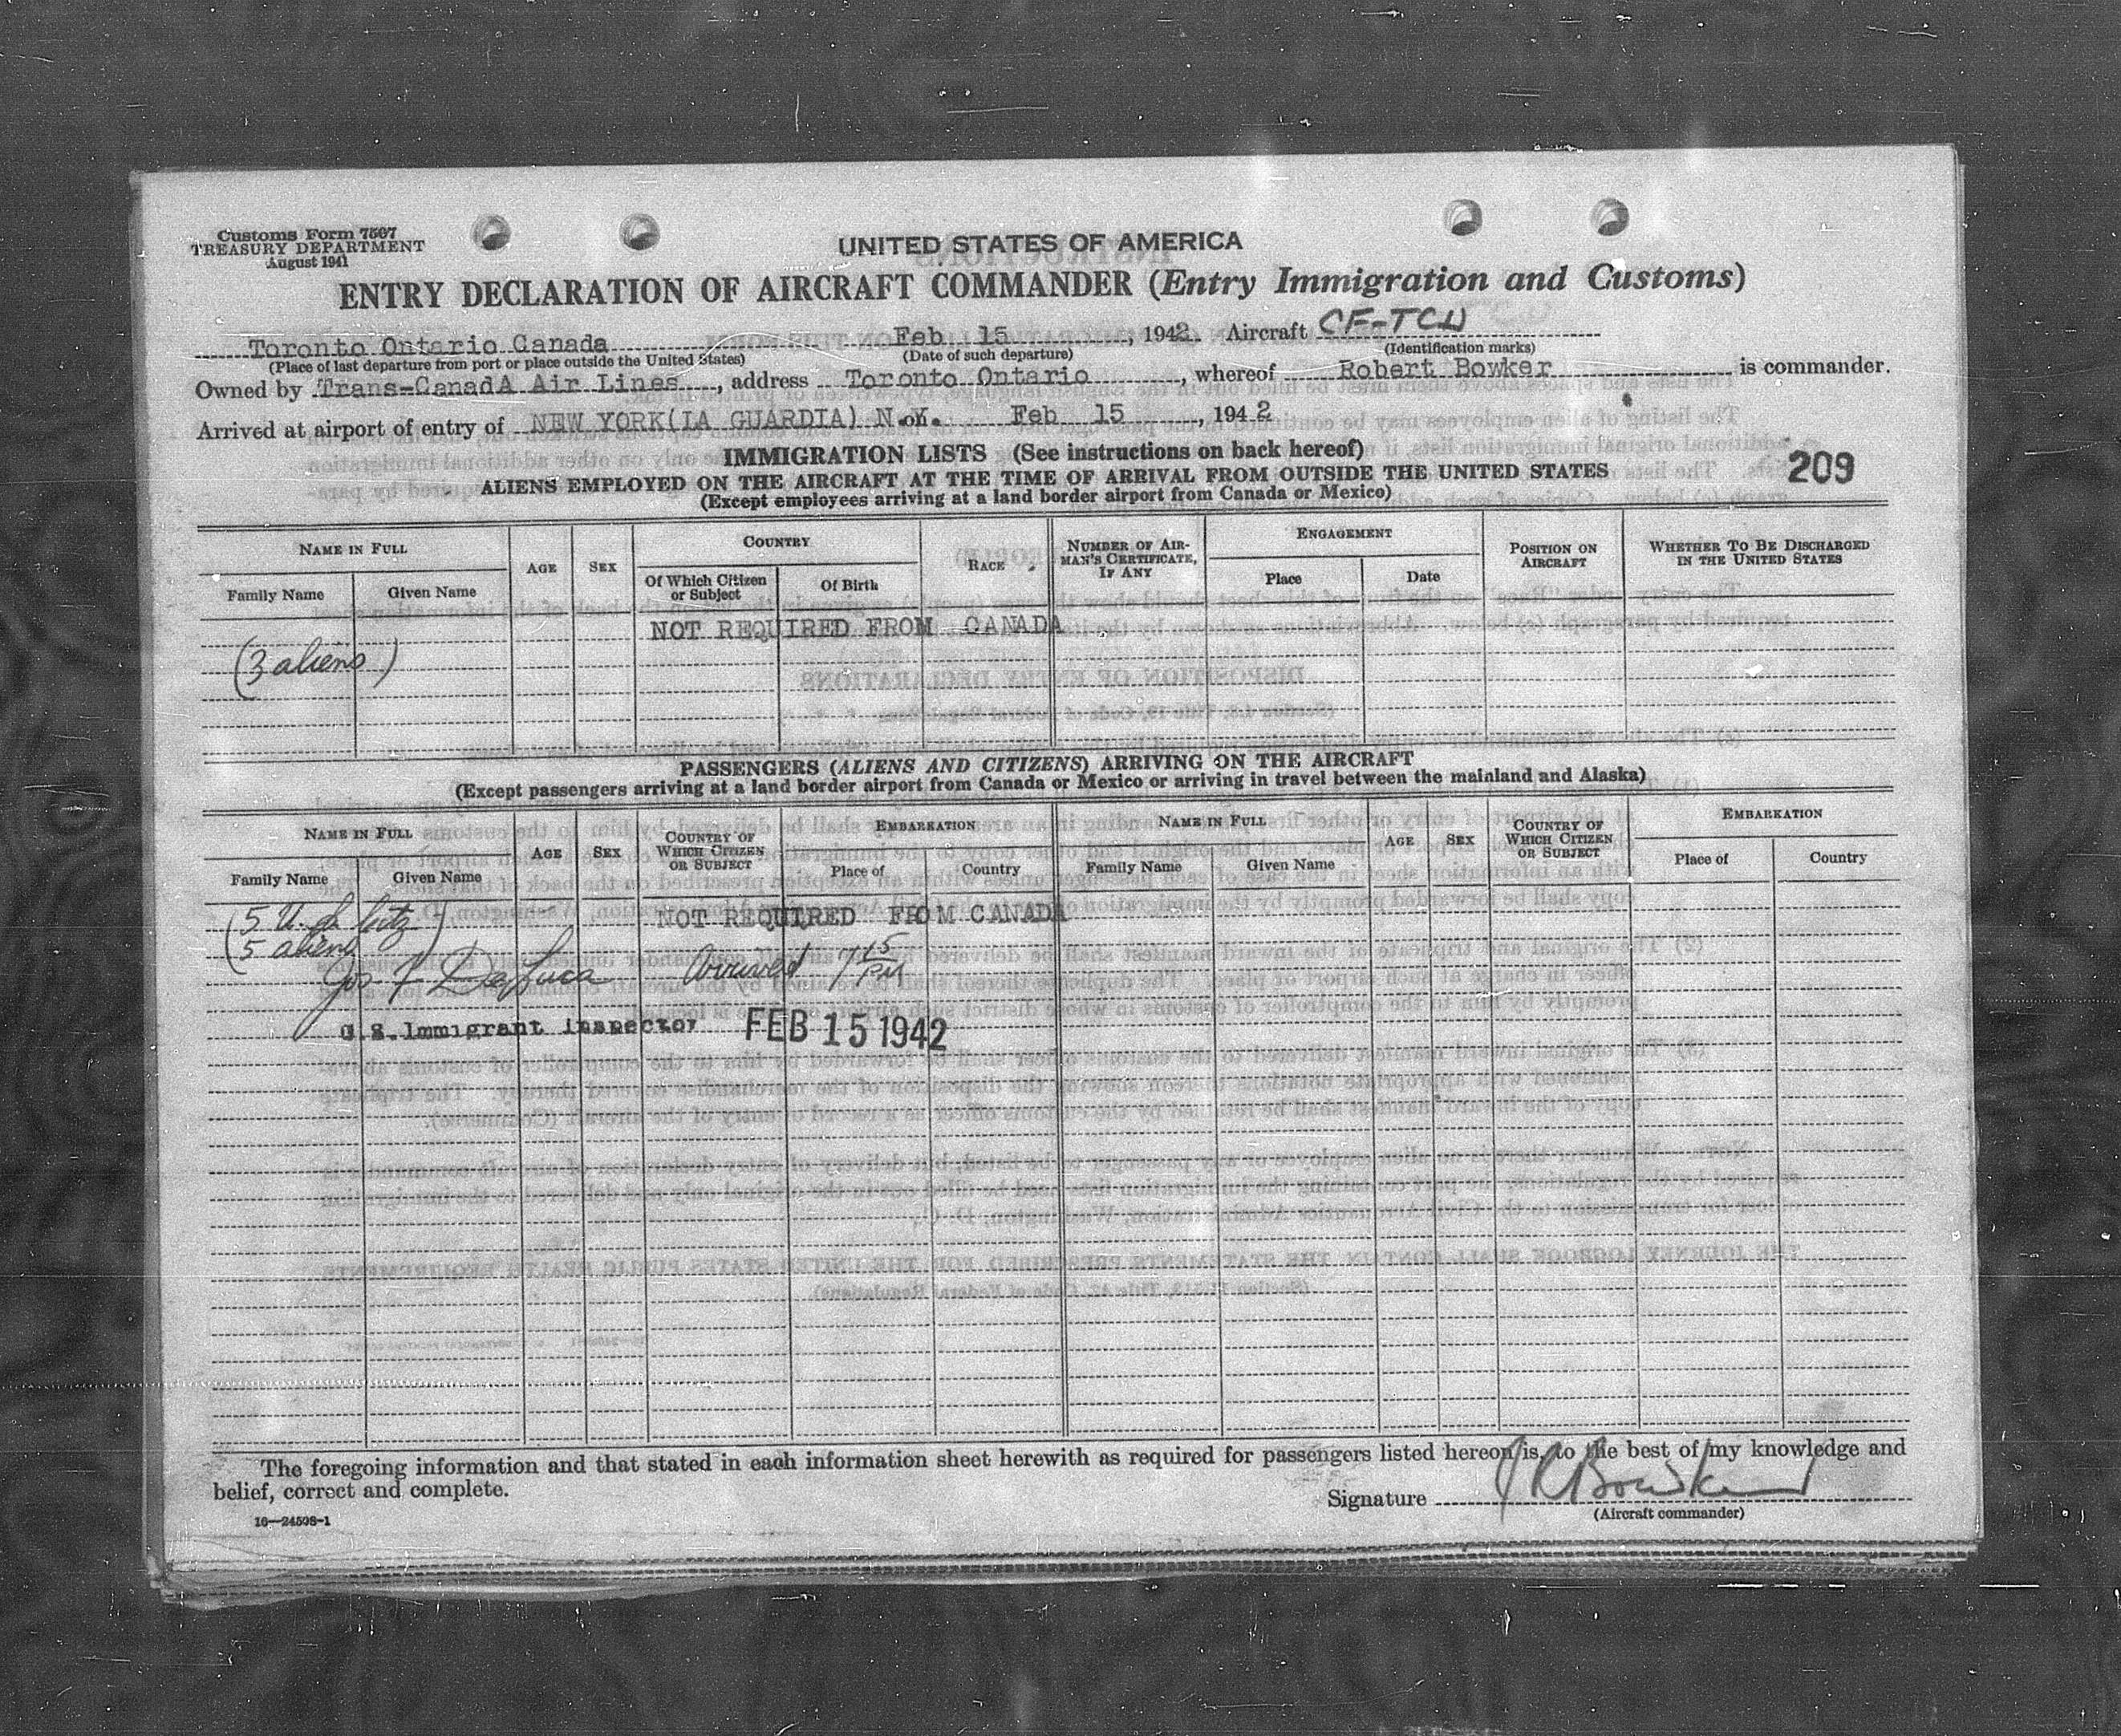 Customs Form 7507
TREASURY DEPARTMENT
August 1941
UNITED STATES OF AMERICA
ENTRY DECLARATION OF AIRCRAFT COMMANDER (Entry Immigration and Customs)
Toronto Ontario Canada Feb 15, 1942. Aircraft
(Place of last departure from port or place outside the United States) (Date of such departure) (Identification marks)
Owned by Trans-CanadA Air Lines, address Toronto Ontario, whereof Robert Bowker is commander.
Arrived at airport of entry of NEW YORK(LA GUARDIA) N.Y. Feb 15, 1942
IMMIGRATION LISTS (See instructions on back hereof)
209
ALIENS EMPLOYED ON THE AIRCRAFT AT THE TIME OF ARRIVAL FROM OUTSIDE THE UNITED STATES
(Except employees arriving at a land border airport from Canada or Mexico)
NAME IN FULL AGE SEX COUNTRY RACE NUMBER OF AIRMAN'S CERTIFICATE, IF ANY ENGAGEMENT POSITION ON AIRCRAFT WHETHER TO BE DISCHARGED IN THE UNITED STATES
Family Name Given Name Of Which Citizen or Subject Of Birth Place Date
NOT REQUIRED FROM CANADA
(3 aliens)
PASSENGERS (ALIENS AND CITIZENS) ARRIVING ON THE AIRCRAFT
(Except passengers arriving at a land border airport from Canada or Mexico or arriving in travel between the mainland and Alaska)
NAME IN FULL AGE SEX COUNTRY OF WHICH CITIZEN OR SUBJECT EMBARKATION NAME IN FULL AGE SEX COUNTRY OF WHICH CITIZEN OR SUBJECT EMBARKATION
Family Name Given Name Place of Country Family Name Given Name Place of Country
(5 U.S. citz
NOT REQUIRED FROM CANADA
5 aliens)
Jos F DeLuca Arrived 7 15 PM
U.S. Immigrant inspector FEB 15 1942
The foregoing information and that stated in each information sheet herewith as required for passengers listed hereon is, to the best of my knowledge and
belief, correct and complete.
Signature R Bowker
(Aircraft commander)
16—24508-1